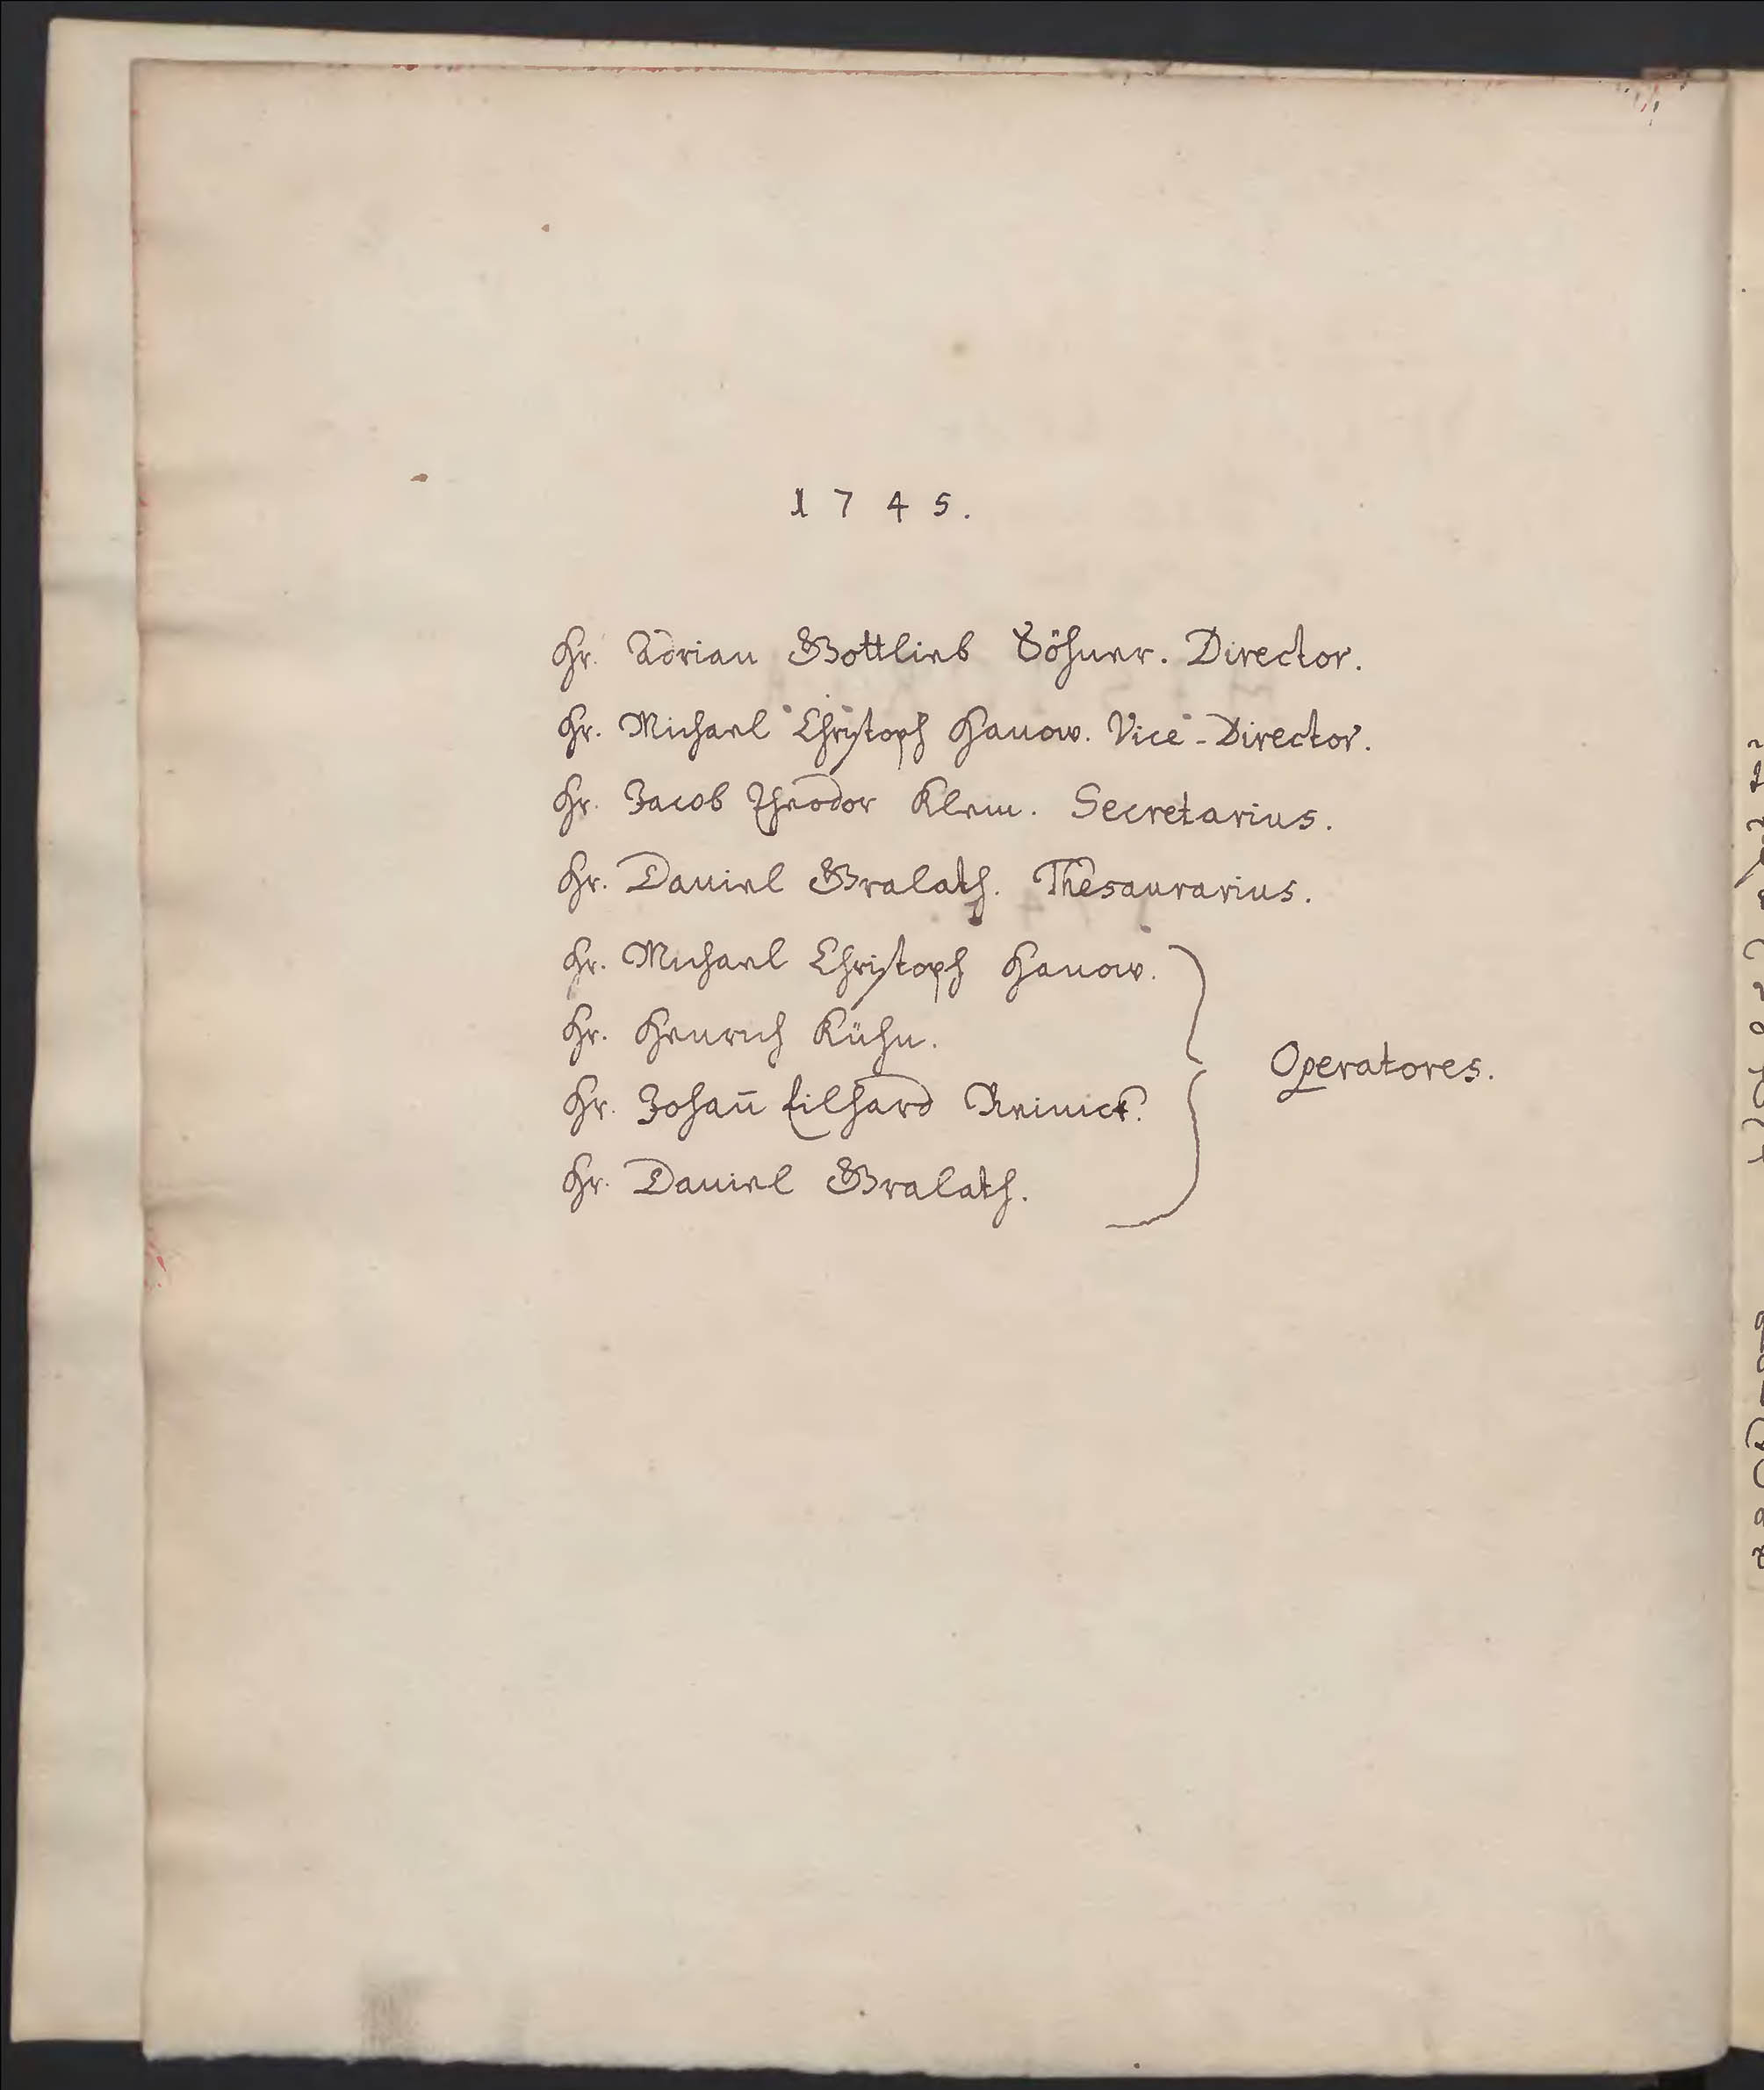 1745.
Hr. Adrian Gottlieb Söhner. Director.
Hr. Michael Christoph Hanow. Vice-Director.
Hr. Jacob Theodor Klein. Secretarius.
Hr. Daniel Gralath. Thesaurarius.
Hr. Michael Christoph Hanow.
Hr. Henrich Kühn.
Hr. Johan̄ Eilhard Reinick.
Hr. Daniel Gralath.
Operatores.